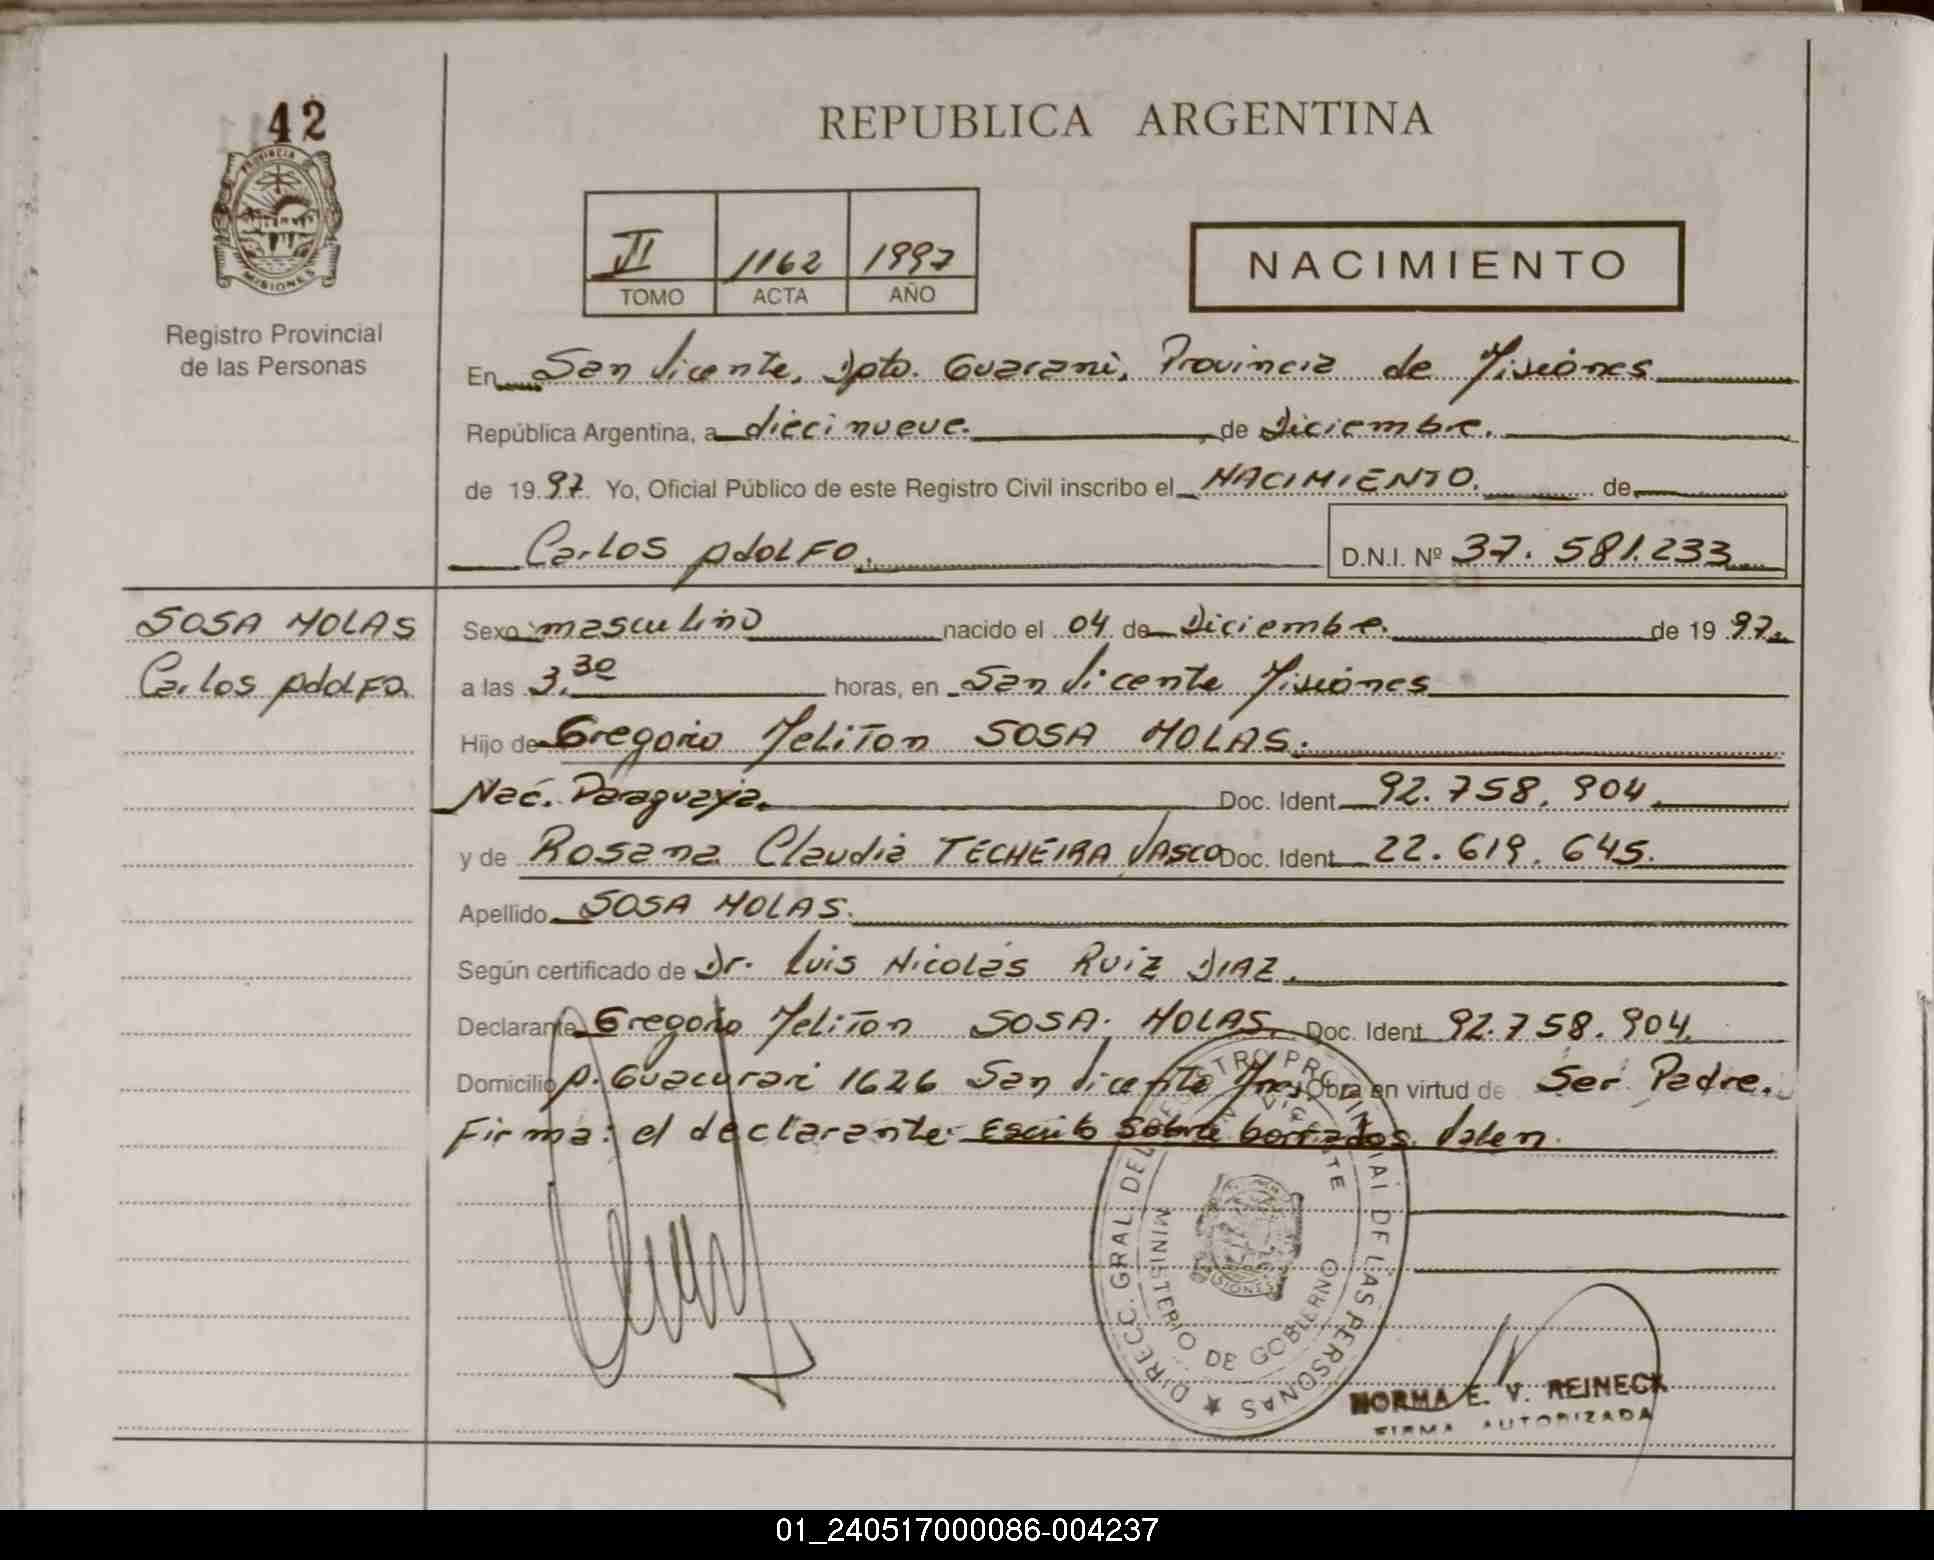 42
PROVINCIA
MISIONES
Registro Provincial
de las Personas
REPUBLICA ARGENTINA
II 1162 1997
TOMO ACTA AÑO
NACIMIENTO
En San Vicente, Dpto. Guarani, Provincia de Misiones
República Argentina, a diecinueve. de Diciembre.
de 1997. Yo, Oficial Público de este Registro Civil inscribo el NACIMIENTO. de
Carlos AdOLFO. D.N.I. Nº 37.581.233
SOSA MOLAS
Carlos AdOLFO.
Sexo masculino nacido el 04 de Diciembre. de 1997.
a las 3.30 horas, en San Vicente Misiones
Hijo de Gregorio Meliton SOSA MOLAS.
Nac. Paraguaya. Doc. Ident 92.758.904
y de Rosana Claudia TECHEIRA VASCO Doc. Ident 22.619.645.
Apellido SOSA MOLAS.
Según certificado de Dr. Luis Nicolás Ruiz DIAZ.
Declarante Gregorio Meliton SOSA. MOLAS. Doc. Ident 92.758.904.
Domicilio A. Guacurari 1626 San Vicente Mnes Obra en virtud de Ser Padre.
Firma: el declarante. Escrito Sobre borrados. Valen.
DIRECC. GRAL. DEL REGISTRO PROVINCIAL DE LAS PERSONAS
MINISTERIO DE GOBIERNO
MISIONES
NORMA E. V. REINECK
FIRMA AUTORIZADA
01_240517000086-004237